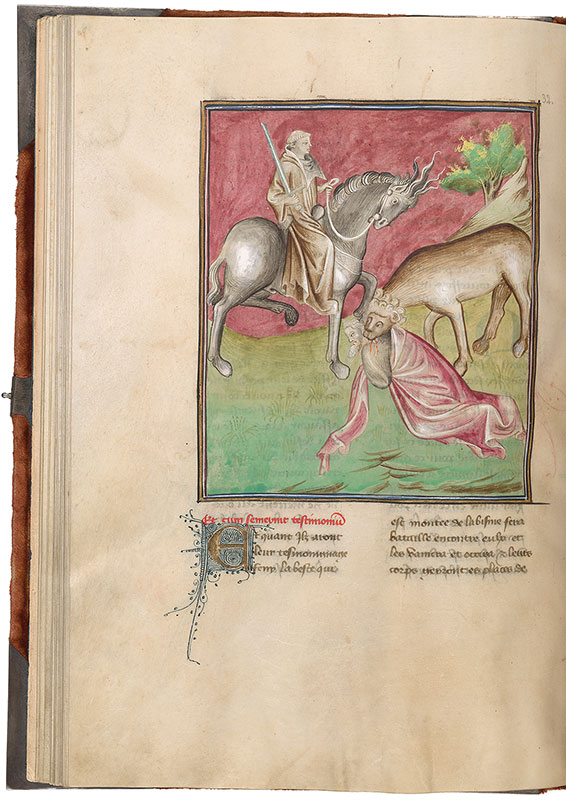 32.
Et cum femerint testimoniū
Et quant ilz aront
leur tesmoinnaige
feny la beste qui
est montee de labisme fera
bataille encontre eulx et
les vaincra et occira et leurs
corps gerront es places de